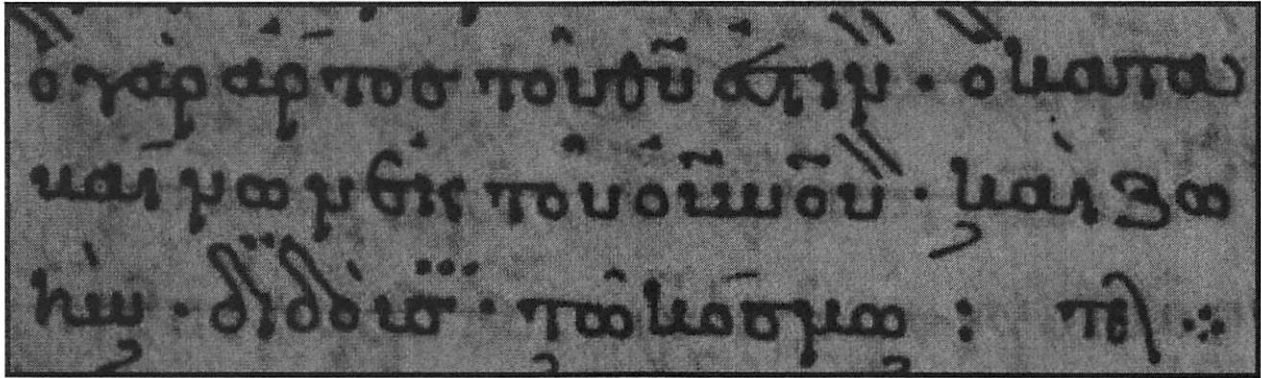 ὁ γὰρ ἄρτοσ τοῦ θῦ ἐστιν · ὁ κατα
βαίνων ἐκ τοῦ οὐνοῦ · καὶ ζω
ὴν · διδοὺσ · τῶ κόσμω : τελ